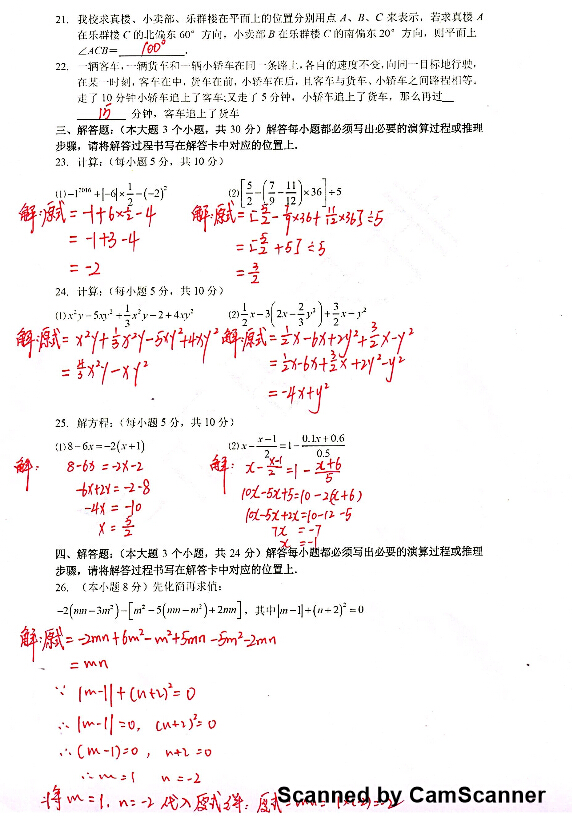 21. 我校求真楼、小卖部、乐群楼在平面上的位置分别用点 A、B、C 来表示，若求真楼 A
在乐群楼 C 的北偏东 60° 方向，小卖部 B 在乐群楼 C 的南偏东 20° 方向，则平面上
∠ACB= 100° .
22. 一辆客车,一辆货车和一辆小轿车在同一条路上,各自的速度不变,向同一目标地行驶,
在某一时刻,客车在中,货车在前,小轿车在后,且客车与货车、小轿车之间路程相等.
走了 10 分钟小轿车追上了客车;又走了 5 分钟, 小轿车追上了货车，那么再过
15 分钟，客车追上了货车
三、解答题:（本大题 3 个小题，共 30 分）解答每小题都必须写出必要的演算过程或推理
步骤，请将解答过程书写在解答卡中对应的位置上.
23. 计算:（每小题 5 分，共 10 分）
(1) -1²⁰¹⁶+|-6|×1/2-(-2)² (2) [5/2-(7/9-11/12)×36]÷5
解:原式= -1+6×1/2-4 解:原式= [5/2-7/9×36+11/12×36]÷5
= -1+3-4 = [5/2+5]÷5
= -2 = 3/2
24. 计算:（每小题 5 分，共 10 分）
(1) x²y-5xy²+1/3x²y-2+4xy² (2) 1/2x-3(2x-2/3y²)+3/2x-y²
解:原式= x²y+1/3x²y-5xy²+4xy² 解:原式= 1/2x-6x+2y²+3/2x-y²
= 4/3x²y-xy² = 1/2x-6x+3/2x+2y²-y²
= -4x+y²
25. 解方程:（每小题 5 分，共 10 分）
(1) 8-6x=-2(x+1) (2) x-(x-1)/2=1-(0.1x+0.6)/0.5
解: 8-6x=-2x-2 解: x-(x-1)/2=1-(x+6)/5
-6x+2x=-2-8 10x-5x+5=10-2(x+6)
-4x=-10 10x-5x+2x=10-12-5
x=5/2 7x=-7
x=-1
四、解答题:（本大题 3 个小题，共 24 分）解答每小题都必须写出必要的演算过程或推理
步骤，请将解答过程书写在解答卡中对应的位置上.
26. （本小题 8 分）先化简再求值:
-2(mn-3m²)-[m²-5(mn-m²)+2mn], 其中|m-1|+(n+2)²=0
解:原式= -2mn+6m²-m²+5mn-5m²-2mn
= mn
∵ |m-1|+(n+2)²=0
∴ |m-1|=0, (n+2)²=0
∴ (m-1)=0, n+2=0
∴ m=1 n=-2
将 m=1, n=-2 代入原式得: 原式=mn=1×(-2)=-2
Scanned by CamScanner